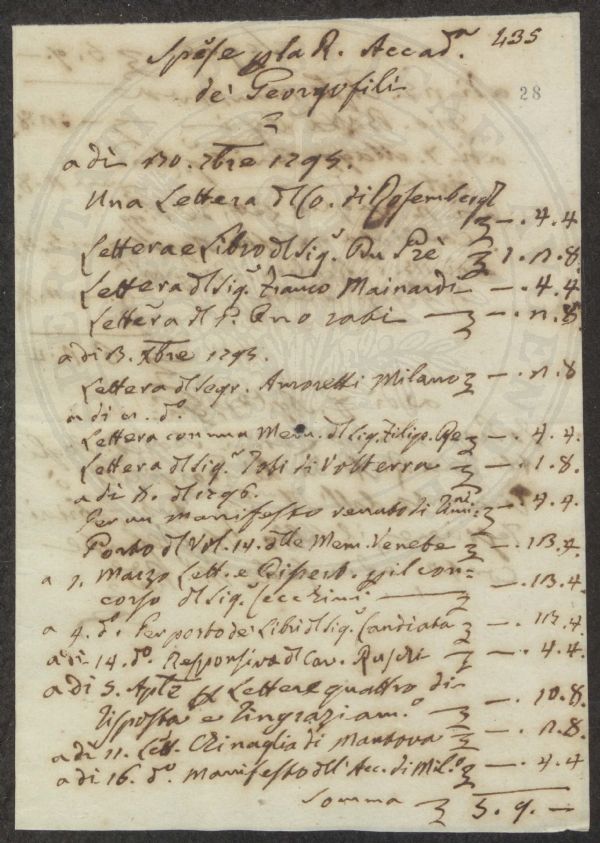 Spese p la R. Accad.a 235
de' Georgofili
28
a dì 30. 7bre 1795.
Una Lettera dl Co. di Rosemberg — . 4. 4
Lettera e Libro dl Sig.r Du Prè 1. n. 8.
Lettera dl Sig.r Franco Mainardi — . 4. 4
Lettera dl P. — . n. 8
a di 13. Xbre 1795.
Lettera dl Segr. Amoretti Milano — . n. 8
a di d.o
Lettera con una Mem. dl Sig. Filipo Re — . 4. 4.
Lettera dl Sig.r di Volterra — . 1. 8.
a di dl 1796.
Per un manifesto venuto di — . 4. 4
Porto dl Vol. 14. dlle Mem. Venete — . 13. 4
a 1. Marzo Lett. e Dissert. pil con=
corso dl Sig.r — . 13. 4
a 4. d.o Per porto de' Libri dl Sig.r Candiata — . 4
a di 14. d.o Responsiva dl Cav. — . 4. 4.
a di 5. Aple Lettere quattro di
risposta e ringraziam.o — . 10. 8
a di 11. Lett. Chinaglia di Mantova — . n. 8.
a di 16. d.o Manifesto dll' Acc. di Mil.o — . 4. 4
Somma 5. 9. —